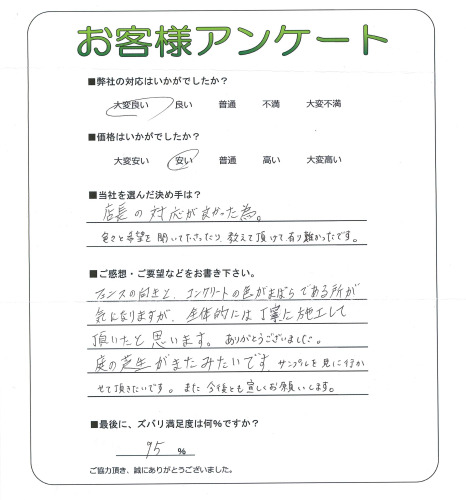 お客様アンケート
■弊社の対応はいかがでしたか？
大変良い 良い 普通 不満 大変不満
■価格はいかがでしたか？
大変安い 安い 普通 高い 大変高い
■当社を選んだ決め手は？
店長の対応がよかった為。
色々と希望を聞いて下さったり、教えて頂けて有り難かったです。
■ご感想・ご要望などをお書き下さい。
フェンスの向きと、コンクリートの色がまばらである所が
気になりますが、全体的には丁寧に施工して
頂いたと思います。ありがとうございました。
庭の芝生がまたみたいです。サンプルを見に行か
せて頂きたいです。また今後とも宜しくお願いします。
■最後に、ズバリ満足度は何%ですか？
95 %
ご協力頂き、誠にありがとうございました。